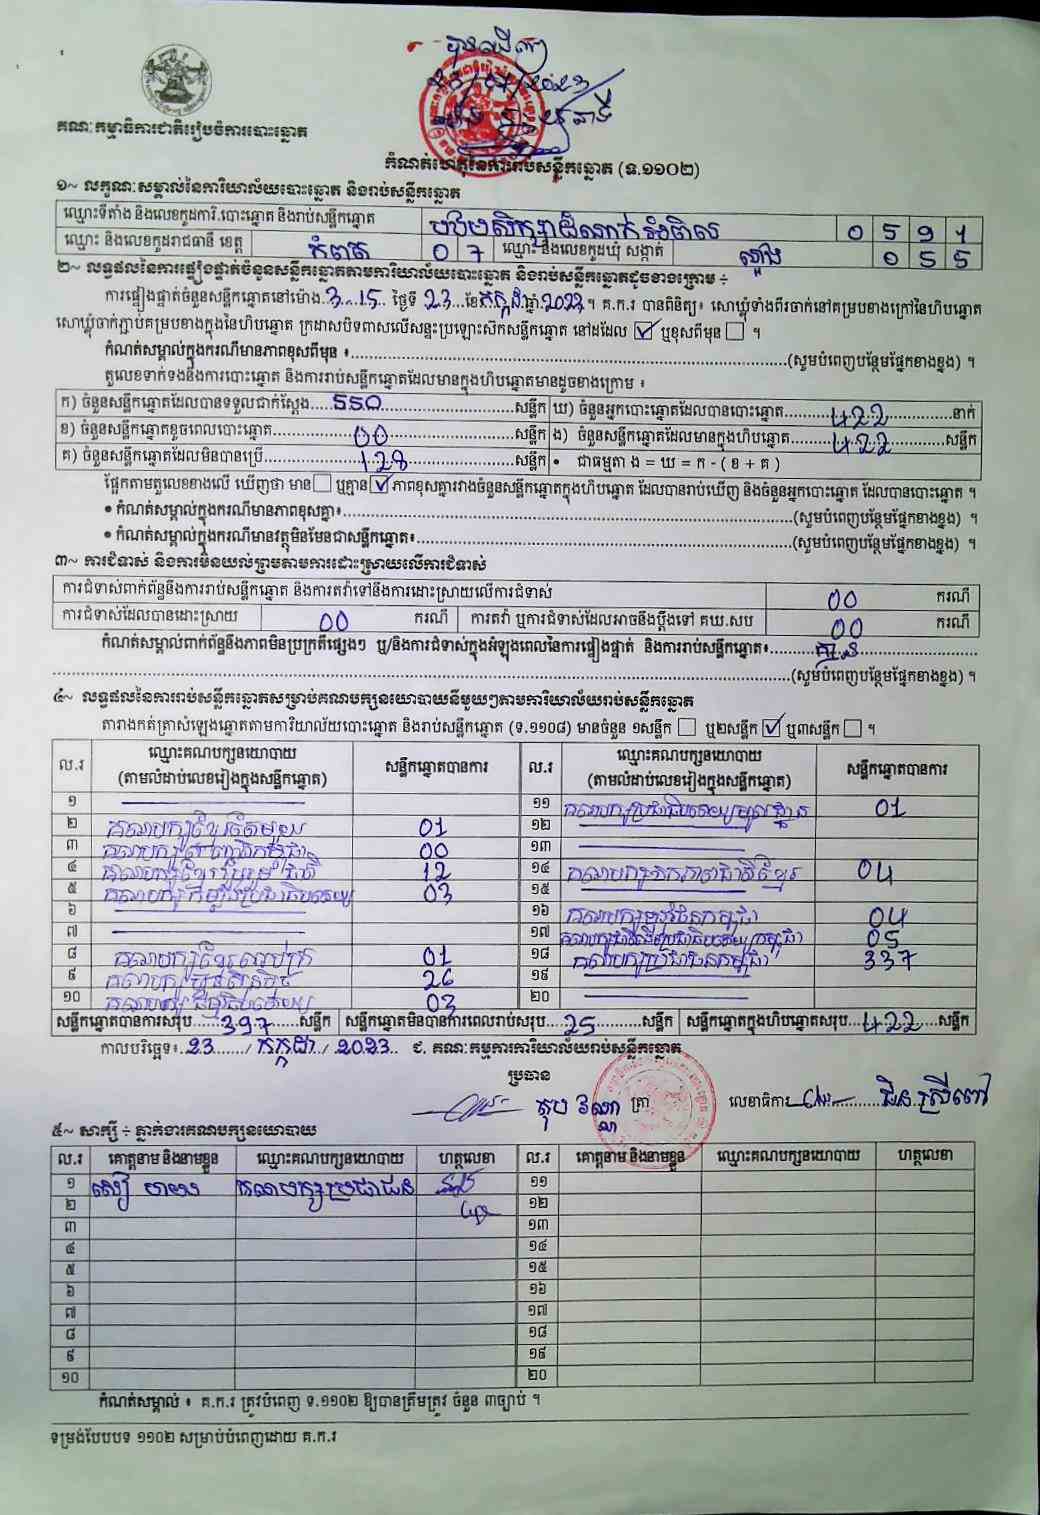 គណៈកម្មាធិការជាតិរៀបចំការបោះឆ្នោត
កំណត់ហេតុនៃការរាប់សន្លឹកឆ្នោត (ទ.១១០២)
១~ លក្ខណៈសម្គាល់នៃការិយាល័យបោះឆ្នោត និងរាប់សន្លឹកឆ្នោត
ឈ្មោះទីតាំង និងលេខកូដការិ.បោះឆ្នោត និងរាប់សន្លឹកឆ្នោត 0 5 9 1
ឈ្មោះ និងលេខកូដរាជធានី ខេត្ត កំពត 0 7 ឈ្មោះ និងលេខកូដឃុំ សង្កាត់ 0 5 5
២~ លទ្ធផលនៃការផ្ទៀងផ្ទាត់ចំនួនសន្លឹកឆ្នោតតាមការិយាល័យបោះឆ្នោត និងរាប់សន្លឹកឆ្នោតដូចខាងក្រោម ÷
ការផ្ទៀងផ្ទាត់ចំនួនសន្លឹកឆ្នោតនៅម៉ោង 3:15 ថ្ងៃទី 23 ខែ កក្កដា ឆ្នាំ 2023 ។ គ.ក.រ បានពិនិត្យ៖ សោឃ្លុំទាំងពីរចាក់នៅគម្របខាងក្រៅនៃហិបឆ្នោត
សោឃ្លុំចាក់ភ្ជាប់គម្របខាងក្នុងនៃហិបឆ្នោត ក្រដាសបិទពាសលើសន្ទះប្រឡោះស៊កសន្លឹកឆ្នោត នៅដដែល ☑ ឬខុសពីមុន ☐ ។
កំណត់សម្គាល់ក្នុងករណីមានភាពខុសពីមុន ៖ (សូមបំពេញបន្ថែមផ្នែកខាងខ្នង) ។
តួលេខទាក់ទងនឹងការបោះឆ្នោត និងការរាប់សន្លឹកឆ្នោតដែលមានក្នុងហិបឆ្នោតមានដូចខាងក្រោម ៖
ក) ចំនួនសន្លឹកឆ្នោតដែលបានទទួលជាក់ស្តែង 550 សន្លឹក ឃ) ចំនួនអ្នកបោះឆ្នោតដែលបានបោះឆ្នោត 422 នាក់
ខ) ចំនួនសន្លឹកឆ្នោតខូចពេលបោះឆ្នោត 00 សន្លឹក ង) ចំនួនសន្លឹកឆ្នោតដែលមានក្នុងហិបឆ្នោត 422 សន្លឹក
គ) ចំនួនសន្លឹកឆ្នោតដែលមិនបានប្រើ 128 សន្លឹក • ជាធម្មតា ង = ឃ = ក - ( ខ + គ )
ផ្អែកតាមតួលេខខាងលើ ឃើញថា មាន ☐ ឬគ្មាន ☑ ភាពខុសគ្នារវាងចំនួនសន្លឹកឆ្នោតក្នុងហិបឆ្នោត ដែលបានរាប់ឃើញ និងចំនួនអ្នកបោះឆ្នោត ដែលបានបោះឆ្នោត ។
• កំណត់សម្គាល់ក្នុងករណីមានភាពខុសគ្នា៖ (សូមបំពេញបន្ថែមផ្នែកខាងខ្នង) ។
• កំណត់សម្គាល់ក្នុងករណីមានវត្ថុមិនមែនជាសន្លឹកឆ្នោត៖ (សូមបំពេញបន្ថែមផ្នែកខាងខ្នង) ។
៣~ ការជំទាស់ និងការមិនយល់ព្រមតាមការដោះស្រាយលើការជំទាស់
ការជំទាស់ពាក់ព័ន្ធនឹងការរាប់សន្លឹកឆ្នោត និងការតវ៉ាទៅនឹងការដោះស្រាយលើការជំទាស់ 00 ករណី
ការជំទាស់ដែលបានដោះស្រាយ 00 ករណី ការតវ៉ា ឬការជំទាស់ដែលអាចនឹងប្តឹងទៅ គឃ.សប 00 ករណី
កំណត់សម្គាល់ពាក់ព័ន្ធនឹងភាពមិនប្រក្រតីផ្សេងៗ ឬ/និងការជំទាស់ក្នុងអំឡុងពេលនៃការផ្ទៀងផ្ទាត់ និងការរាប់សន្លឹកឆ្នោត៖ គ្មាន
(សូមបំពេញបន្ថែមផ្នែកខាងខ្នង) ។
៤~ លទ្ធផលនៃការរាប់សន្លឹកឆ្នោតសម្រាប់គណបក្សនយោបាយនីមួយៗតាមការិយាល័យរាប់សន្លឹកឆ្នោត
តារាងកត់ត្រាសំឡេងឆ្នោតតាមការិយាល័យបោះឆ្នោត និងរាប់សន្លឹកឆ្នោត (ទ.១១០៨) មានចំនួន ១សន្លឹក ☐ ឬ២សន្លឹក ☑ ឬ៣សន្លឹក ☐ ។
ល.រ ឈ្មោះគណបក្សនយោបាយ (តាមលំដាប់លេខរៀងក្នុងសន្លឹកឆ្នោត) សន្លឹកឆ្នោតបានការ ល.រ ឈ្មោះគណបក្សនយោបាយ (តាមលំដាប់លេខរៀងក្នុងសន្លឹកឆ្នោត) សន្លឹកឆ្នោតបានការ
១ ១១ គណបក្សប្រជាធិបតេយ្យមូលដ្ឋាន 01
២ គណបក្សខ្មែរតែមួយ 01 ១២
៣ គណបក្ស 00 ១៣
៤ គណបក្សខ្មែររួបរួមជាតិ 12 ១៤ គណបក្ស 04
៥ គណបក្សកម្លាំងប្រជាធិបតេយ្យ 03 ១៥
៦ ១៦ គណបក្ស 04
៧ ១៧ គណបក្ស 05
៨ គណបក្ស 01 ១៨ គណបក្សប្រជាជនកម្ពុជា 337
៩ គណបក្សហ៊្វុនស៊ិនប៉ិច 26 ១៩
១០ គណបក្សធម្មាធិបតេយ្យ 03 ២០
សន្លឹកឆ្នោតបានការសរុប 397 សន្លឹក សន្លឹកឆ្នោតមិនបានការពេលរាប់សរុប 25 សន្លឹក សន្លឹកឆ្នោតក្នុងហិបឆ្នោតសរុប 422 សន្លឹក
កាលបរិច្ឆេទ៖ 23 / កក្កដា / 2023 ៩. គណៈកម្មការការិយាល័យរាប់សន្លឹកឆ្នោត
ប្រធាន
ត្រា លេខាធិការ
៥~ សាក្សី ÷ ភ្នាក់ងារគណបក្សនយោបាយ
ល.រ គោត្តនាម និងនាមខ្លួន ឈ្មោះគណបក្សនយោបាយ ហត្ថលេខា ល.រ គោត្តនាម និងនាមខ្លួន ឈ្មោះគណបក្សនយោបាយ ហត្ថលេខា
១ គណបក្សប្រជាជន ១១
២ ១២
៣ ១៣
៤ ១៤
៥ ១៥
៦ ១៦
៧ ១៧
៨ ១៨
៩ ១៩
១០ ២០
កំណត់សម្គាល់ ៖ គ.ក.រ ត្រូវបំពេញ ទ.១១០២ ឱ្យបានត្រឹមត្រូវ ចំនួន ៣ច្បាប់ ។
ទម្រង់បែបបទ ១១០២ សម្រាប់បំពេញដោយ គ.ក.រ